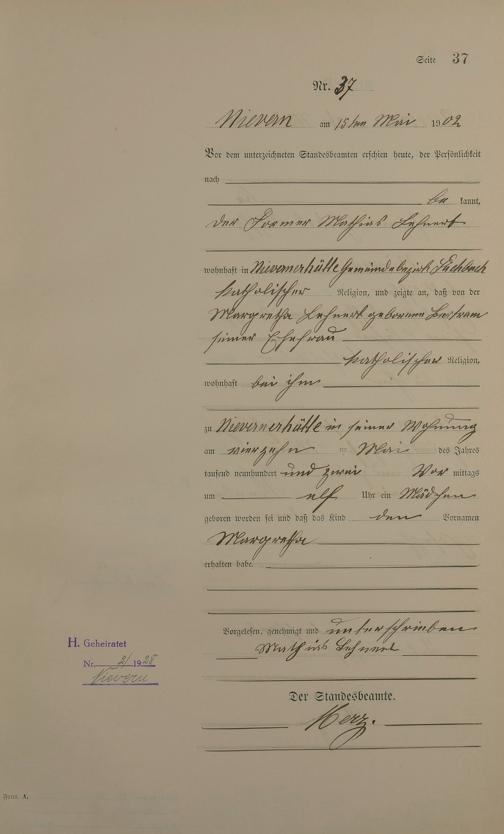 Seite 37
Nr. 37
Nievern am 15ten Mai 1902
Vor dem unterzeichneten Standesbeamten erschien heute, der Persönlichkeit
nach
be kannt,
der Former Mathias Lehnert
wohnhaft in Nievernerhütte Gemeindebezirk Fachbach
katholischer Religion, und zeigte an, daß von der
Margretha Lehnert geborenen Bertram
seiner Ehefrau
katholischer Religion,
wohnhaft bei ihm
zu Nievernerhütte in seiner Wohnung
am vierzehn ten Mai des Jahres
tausend neunhundert und zwei Vor mittags
um elf Uhr ein Mädchen
geboren worden sei und daß das Kind den Vornamen
Margretha
erhalten habe.
Vorgelesen, genehmigt und unterschrieben
Mathias Lehnert
Der Standesbeamte.
Herz.
H. Geheiratet
Nr. 2/1928
Nievern
Form A.